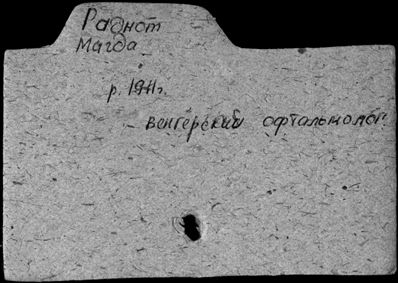 Раднот
Магда
р. 1911г.
венгерский офтальмолог.